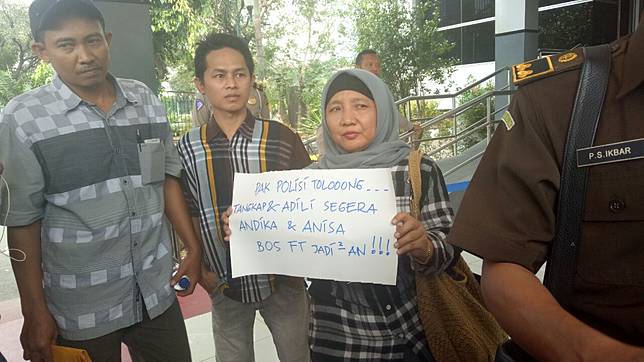 PAK POLISI TOLOOONG...
TANGKAP & ADILI SEGERA
ANDIKA & ANISA
BOS FT JADI²-AN!!!
P.S.IKBAR